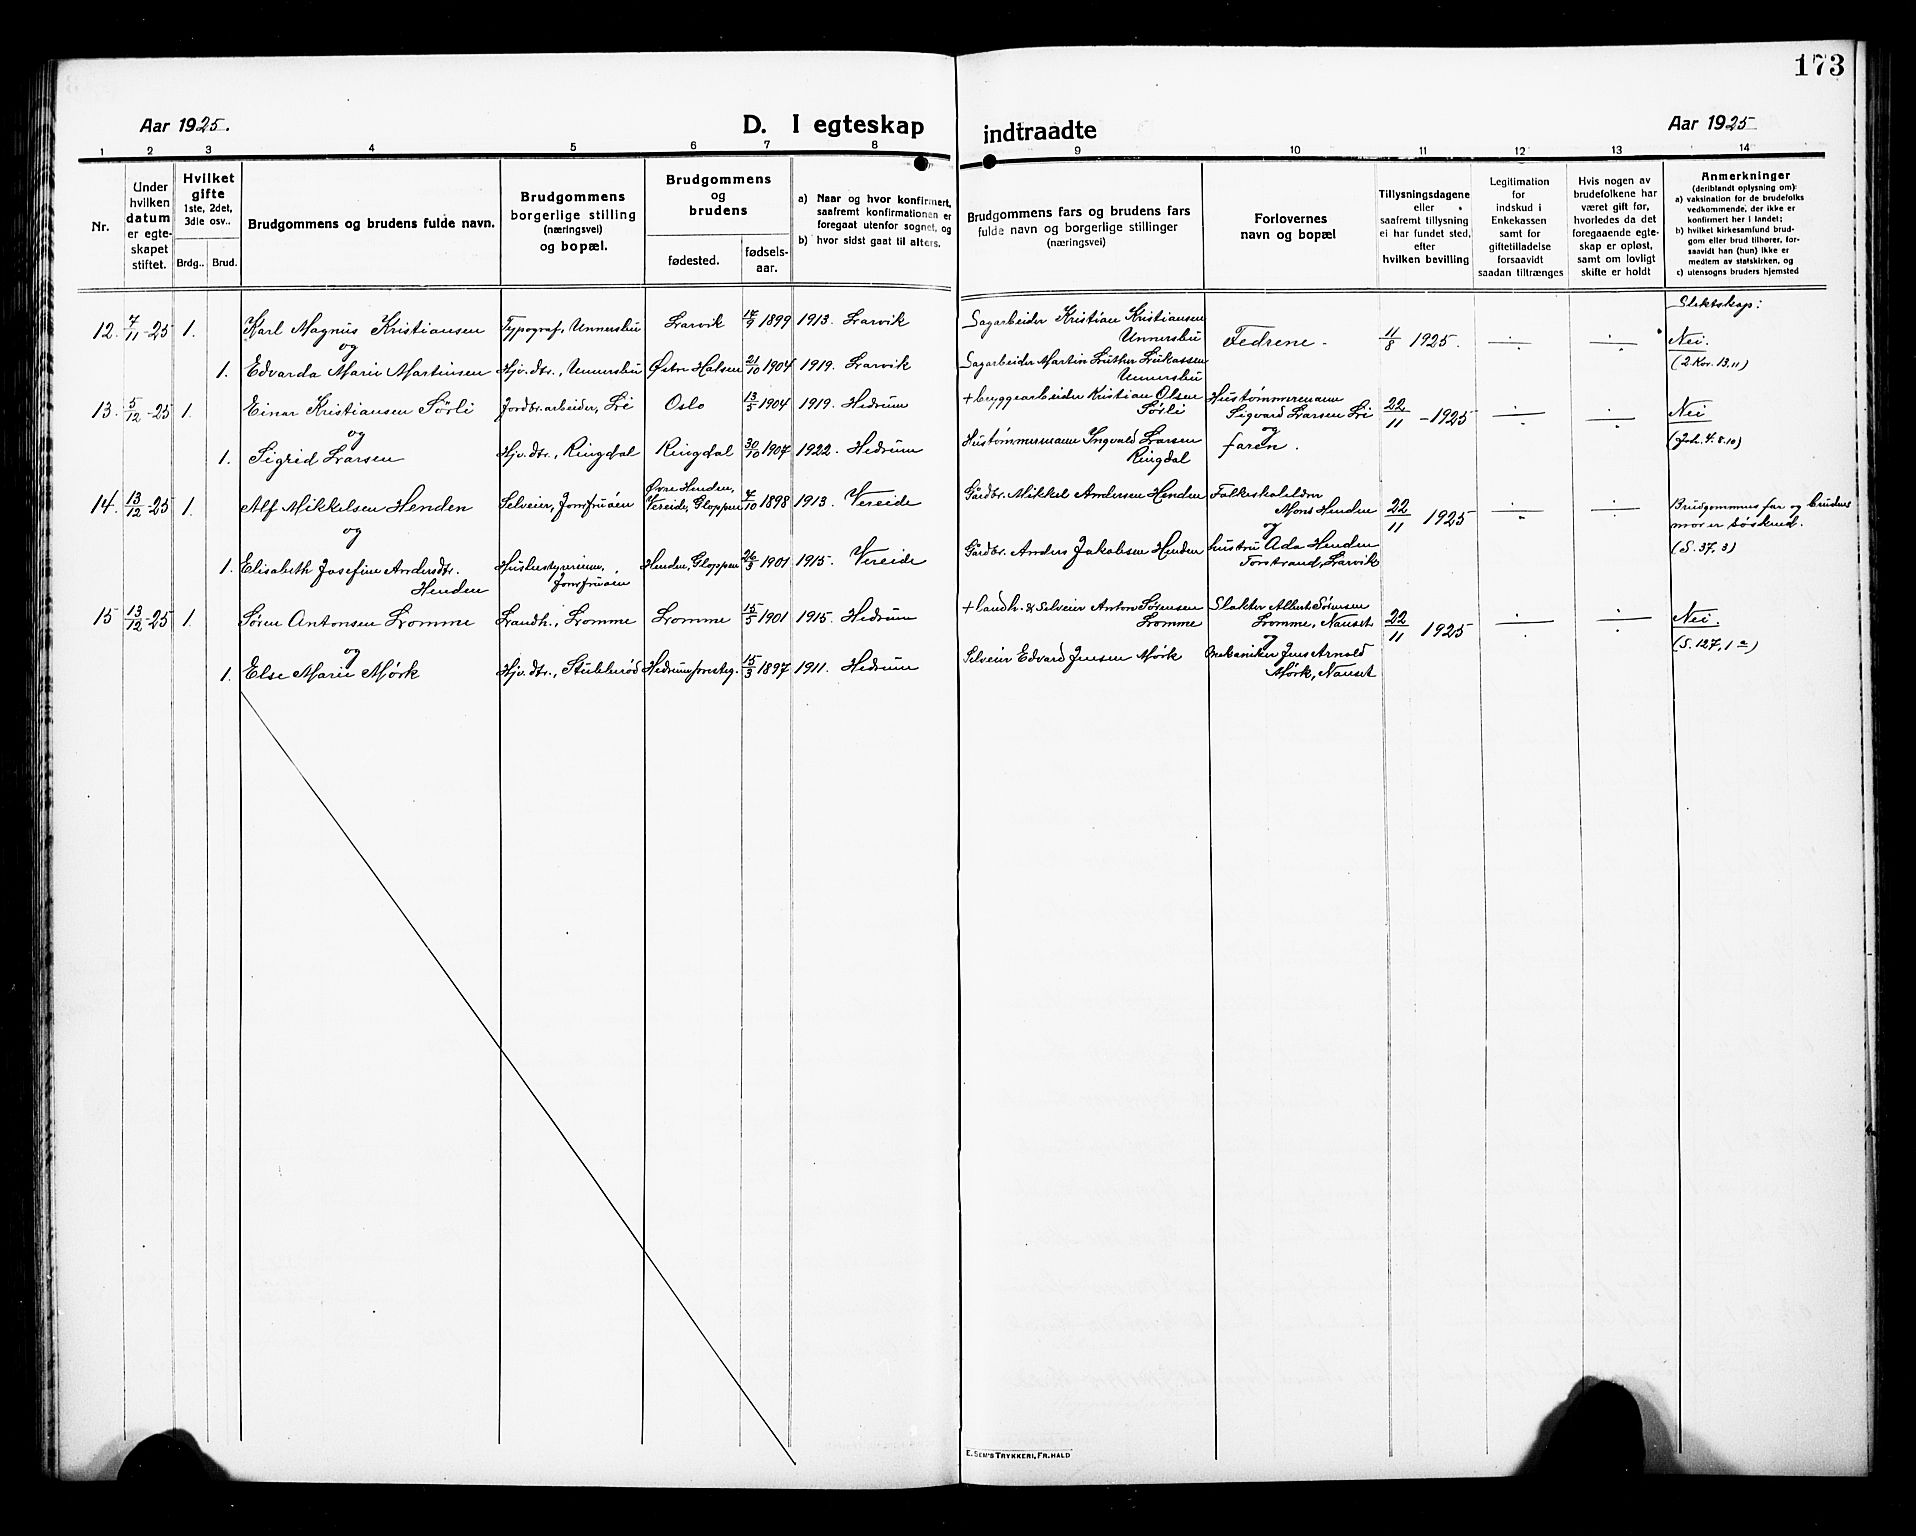 173
Aar 1925.
D. I egteskap
indtraadte
Aar 1925
1 2 3 4 5 6 7 8 9 10 11 12 13 14
Nr.
Under
hvilken
datum
er egte-
skapet
stiftet.
Hvilket
gifte
1ste, 2det,
3die osv..
Brdg.. Brud.
Brudgommens og brudens fulde navn.
Brudgommens
borgerlige stilling
(næringsvei)
og bopæl.
Brudgommens
og
brudens
fødested.
fødsels-
aar.
a) Naar og hvor konfirmert,
saafremt konfirmationen er
foregaat utenfor sognet, og
b) hvor sidst gaat til alters.
Brudgommens fars og brudens fars
fulde navn og borgerlige stillinger
(næringsvei)
Forlovernes
navn og bopæl
Tillysningsdagene
eller
saafremt tillysning
ei har fundet sted,
efter
hvilken bevilling
Legitimation
for
indskud i
Enkekassen
samt for
giftetilladelse
forsaavidt
saadan tiltrænges
Hvis nogen av
brudefolkene har
været gift før,
hvorledes da det
foregaaende egte-
skap er opløst,
samt om lovligt
skifte er holdt
Anmerkninger
(deriblandt oplysning om):
a) vaksination for de brudefolks
vedkommende, der ikke er
konfirmert her i landet;
b) hvilket kirkesamfund brud-
gom eller brud tilhører, for-
saavidt han (hun) ikke er
medlem av statskirken, og
c) utensogns bruders hjemsted
Slektskap:
12. 7/11-25 1. Karl Magnus Kristiansen Typograf, Unnersbu Larvik 17/9 1899 1913. Larvik Sagarbeider Kristian Kristiansen
Unnersbu Fedrene. 11/8 1925. Nei.
og
1. Edvarda Marie Martinsen Hjv. dtr., Unnersbu Østre Halsen 21/10 1904 1919. Larvik Sagarbeider Martin Luther Lukassen
Unnersbu (2 Kor. 13,11)
13. 5/12-25 1. Einar Kristiansen Sørli Jordbr. arbeider, Lie Oslo 13/5 1904 1919. Hedrum + byggearbeider Kristian Olsen
Sørli Hustømmermann
Sigvard Larsen Lie 22/11 - 1925 Nei
og
1. Sigrid Larsen Hjv. dtr., Ringdal Ringdal 30/10 1904 1922. Hedrum Hustømmermann Ingvald Larsen
Ringdal og
faren. (Joh. 4. 8. 10)
14. 13/12-25 1. Alf Mikkelsen Henden Selveier, Jomfruøen Øvre Henden,
Vereide, Gloppen 7/10 1898 1913. Vereide Gårdbr. Mikkel Andersen Henden Folkeskolelærer
Mons Henden 22/11 1925 Brudgommens far og brudens
mor er søskend.
og og
1. Elisabeth Josefine Andersdtr.
Henden Husbestyrerinne,
Jomfruøen Henden, Gloppen 26/3 1901 1915. Vereide Gårdbr. Anders Jakobsen Henden hustru Ada Henden
Torstrand, Larvik (S. 37, 3)
15 13/12-25 1. Søren Antonsen Lromme Landh., Lromme Lromme 15/5 1901 1915. Hedrum + landh. & Selveier Anton Sørensen
Lromme Slakter Albert Sørensen
Lromme, Nanset 22/11 1925 Nei.
og og
1. Else Marie Mørk Hjv. dtr., Stubberød Hedrum prestegd. 15/3 1897 1911. Hedrum Selveier Edvard Jensen Mørk Mekaniker Jens Arnold
Mørk, Nanset (S. 127, 1a)
E. Sem's Trykkeri, Fr.hald